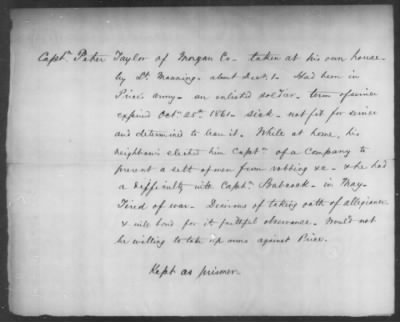 Captn. Peter Taylor of Morgan Co - taken at his own house -
by Lt. Manning - about Dect. 1 - Had been in
Price's army - an enlisted soldier - term of service
expired Octr. 25th. 1861 - sick - not fit for service
and determined to leave it. While at home, his
neighbors elected him Captn. of a Company to
prevent a sett of men from robbing &c - & he had
a difficulty with Captn. Babcock - in May -
Tired of war - Desirous of taking oath of allegiance
& will bond for its faithful observance - Would not
be willing to take up arms against Price.
Kept as prisoner.